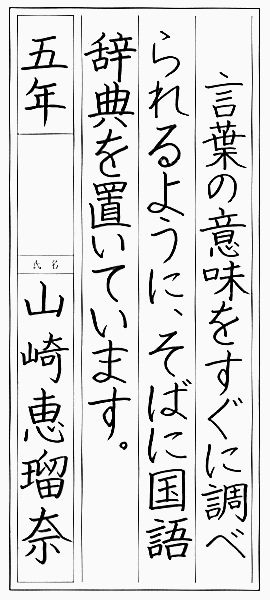 言葉の意味をすぐに調べ
られるように、そばに国語
辞典を置いています。
五年
氏名
山崎恵瑠奈